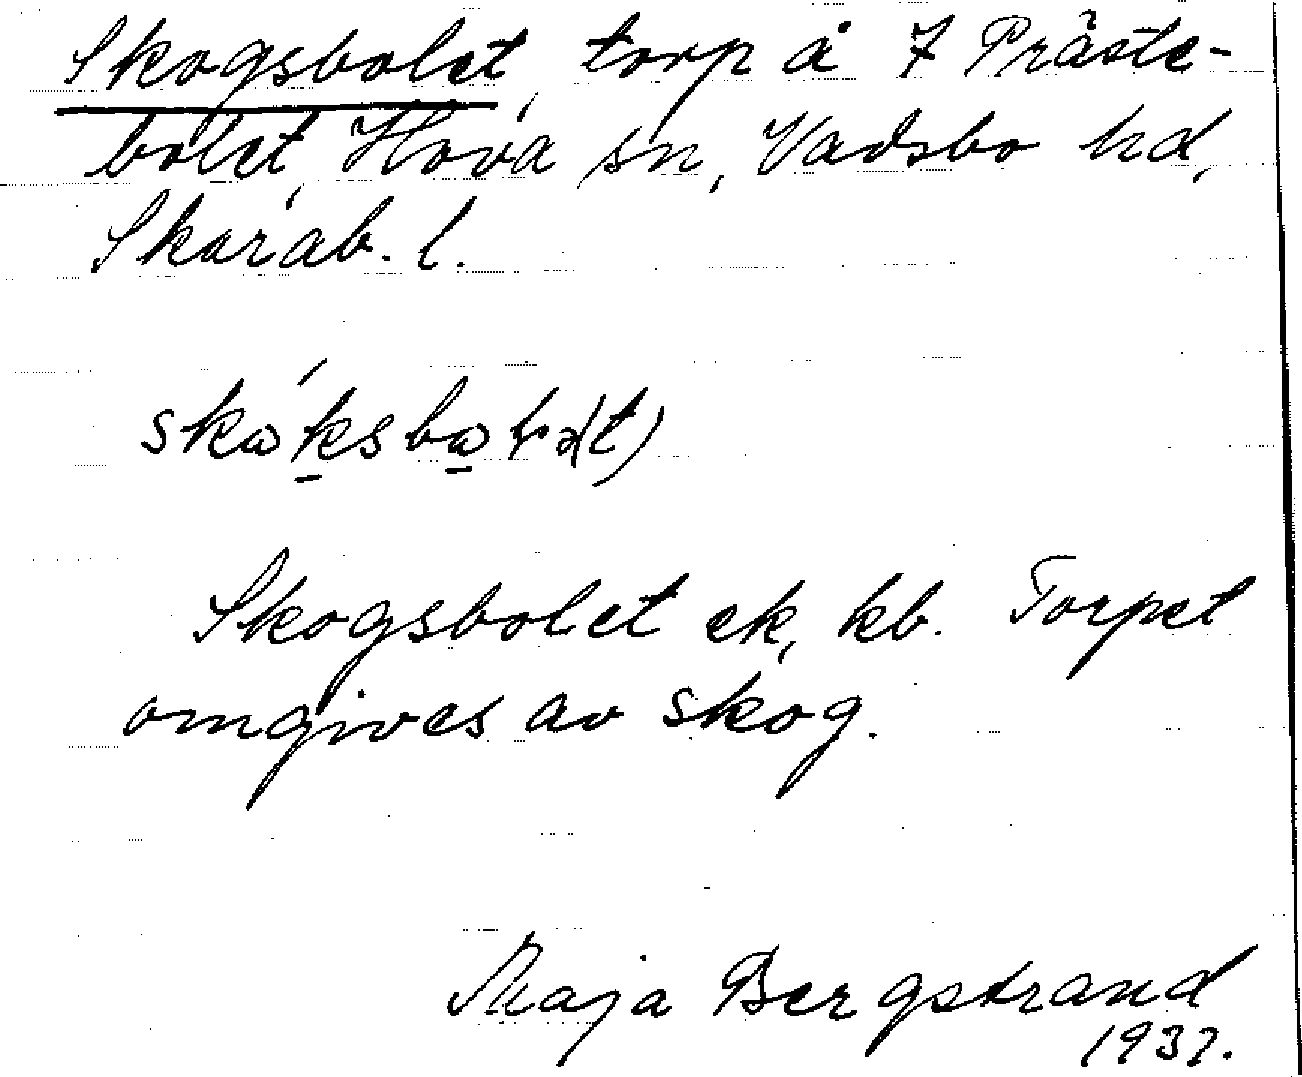 Skogsbolet, torp å 7 Präste-
bolet, Hova sn, Vadsbo hd,
Skarab. l.
Skogsbolet ek, kb. Torpet
omgives av skog.
Maja Bergstrand
1937.